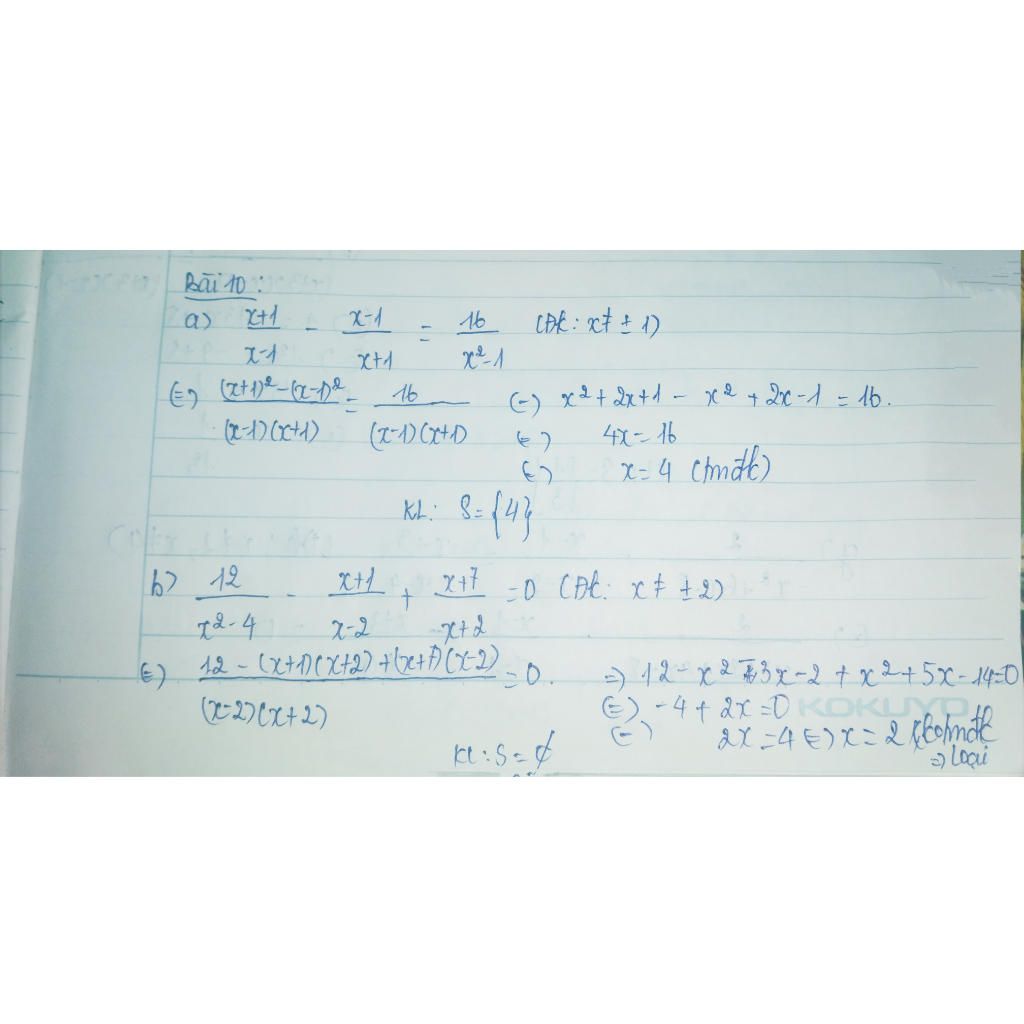 Bài 10:
a) x+1/x-1 - x-1/x+1 = 16/x²-1 (Đk: x≠ ±1)
(=) (x+1)²-(x-1)²/(x-1)(x+1) = 16/(x-1)(x+1) (=) x²+2x+1 - x²+2x-1 = 16.
(=) 4x=16
(=) x=4 (tmđk)
KL: S={4}
b) 12/x²-4 - x+1/x-2 + x+7/x+2 =0 (Đk: x≠ ±2)
(=) 12-(x+1)(x+2)+(x+7)(x-2)/(x-2)(x+2) =0. => 12-x²-3x-2+x²+5x-14=0
(=) -4+2x=0 KOKUYO
(=) 2x=4 (=) x=2 (kotmđk
=> Loại
KL: S=∅